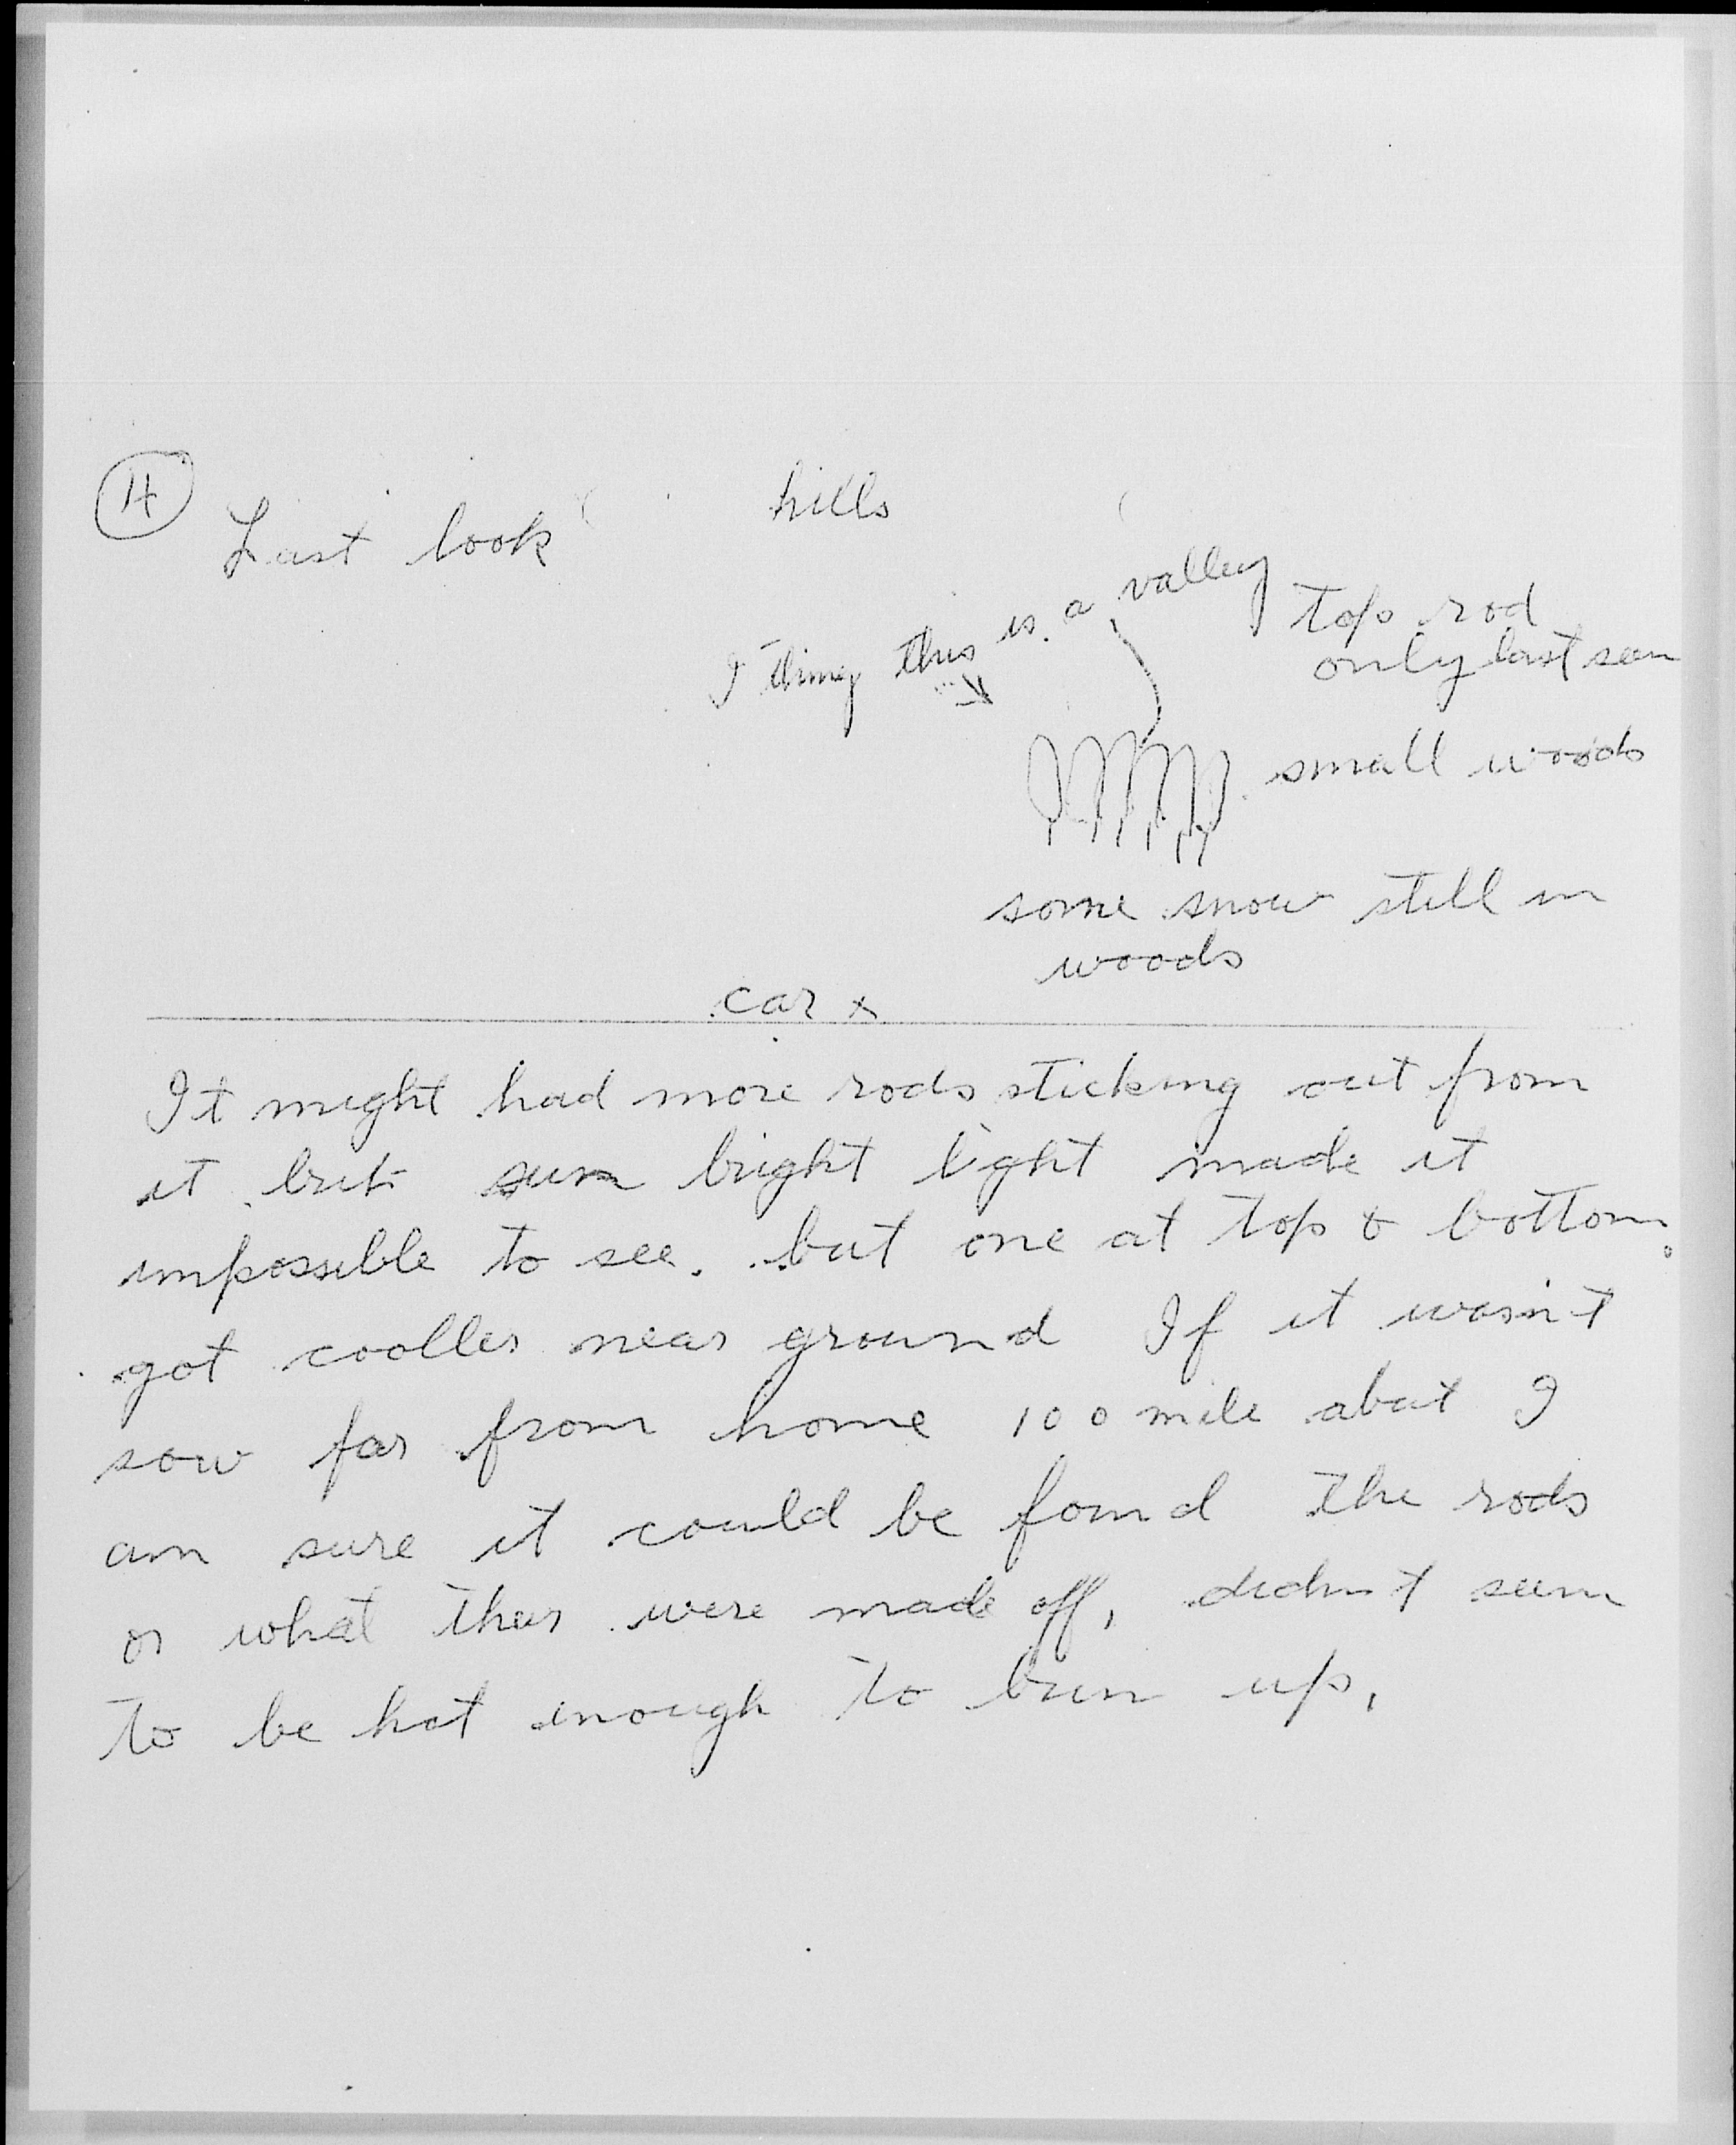 4
Last look
hills
I thing this is a valley
top rod
only last seen
small woods
some snow still in
woods
car x
It might had more rods sticking out from
it but sun bright light made it
impossible to see. but one at top & bottom.
got cooller near ground If it wasn't
sow far from home 100 mile abat I
am sure it could be found The rods
or what they were made off, didn't seem
to be hot enough to burn up,